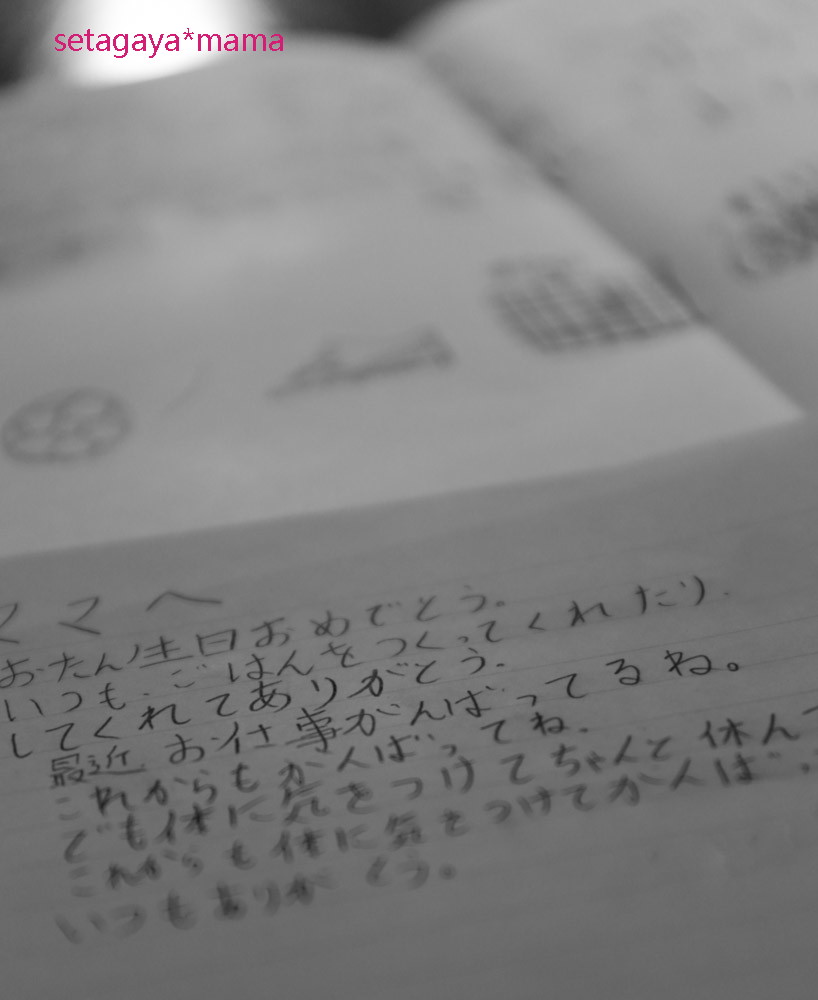 setagaya*mama
ママへ
おたん生日おめでとう。
いつも、ごはんをつくってくれたり、
してくれてありがとう。
最近、お仕事がんばってるね。
これからもがんばってね。
でも体に気をつけてちゃんと休んで
これからも体に気をつけてがんば
いつもありがとう。